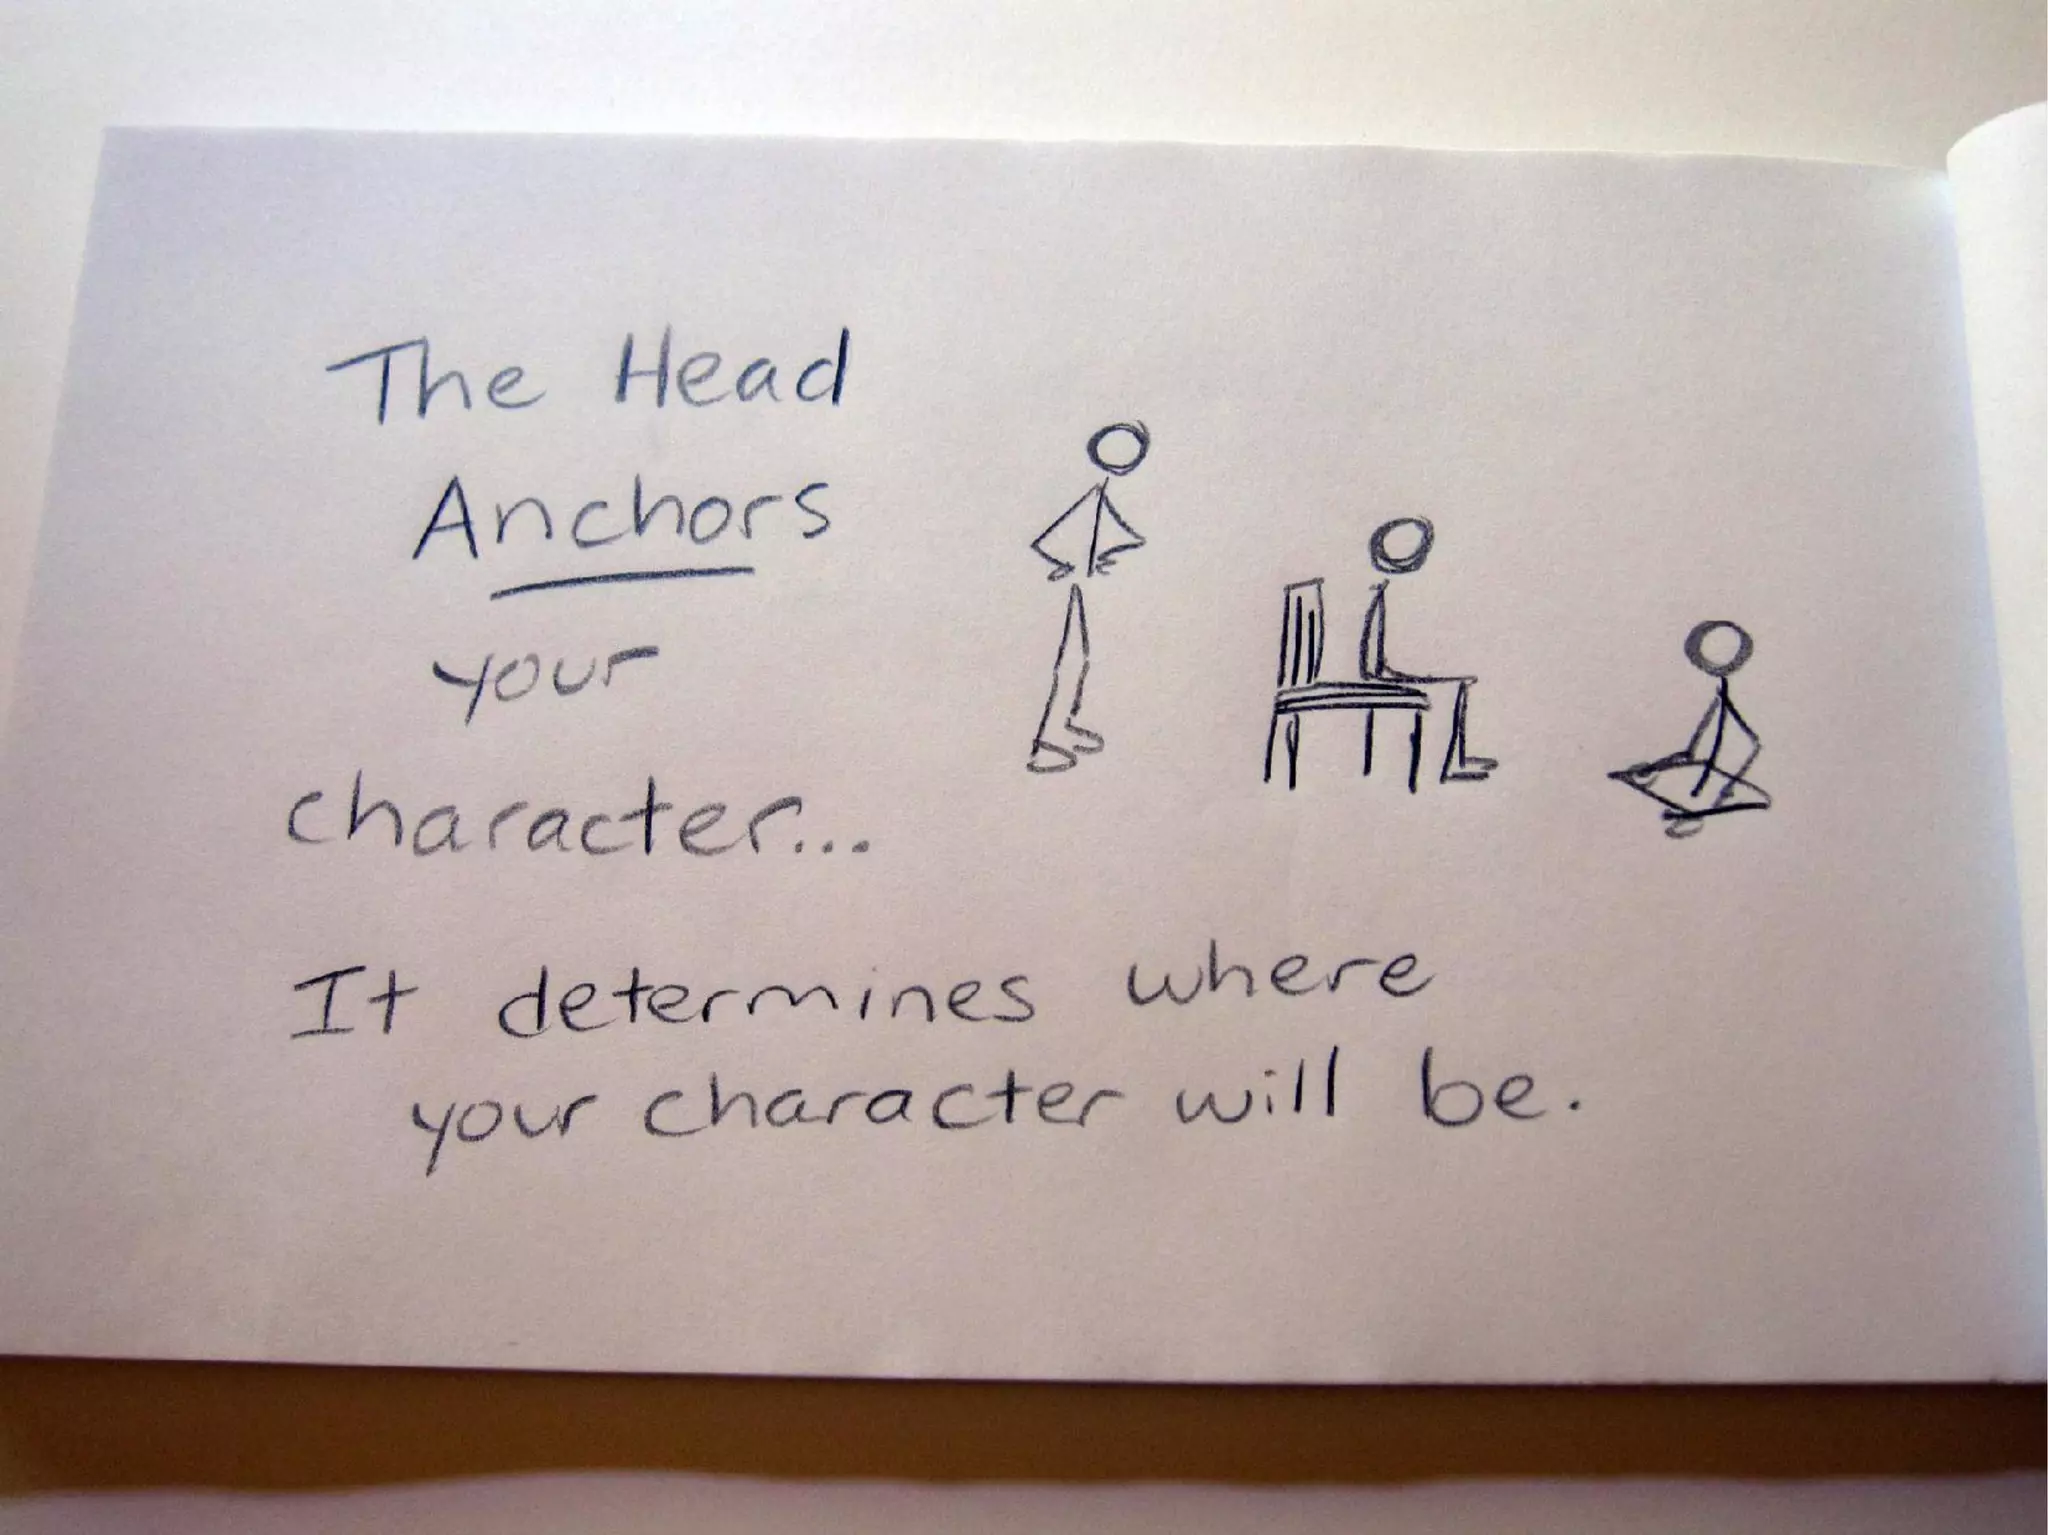 The Head
Anchors
your
character...
It determines where
your character will be.